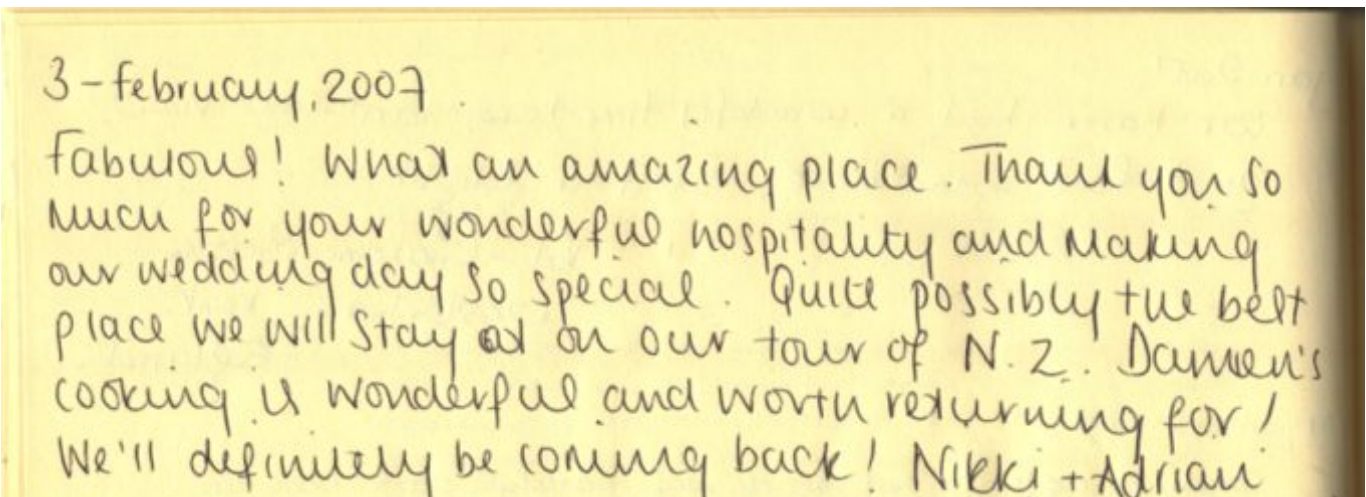 3-february, 2007.
Fabulous! What an amazing place. Thank you so
much for your wonderful hospitality and making
our wedding day so special. Quite possibly the best
place we will stay at on our tour of N.Z. Damien's
cooking is wonderful and worth returning for!
We'll definitely be coming back! Nikki + Adrian